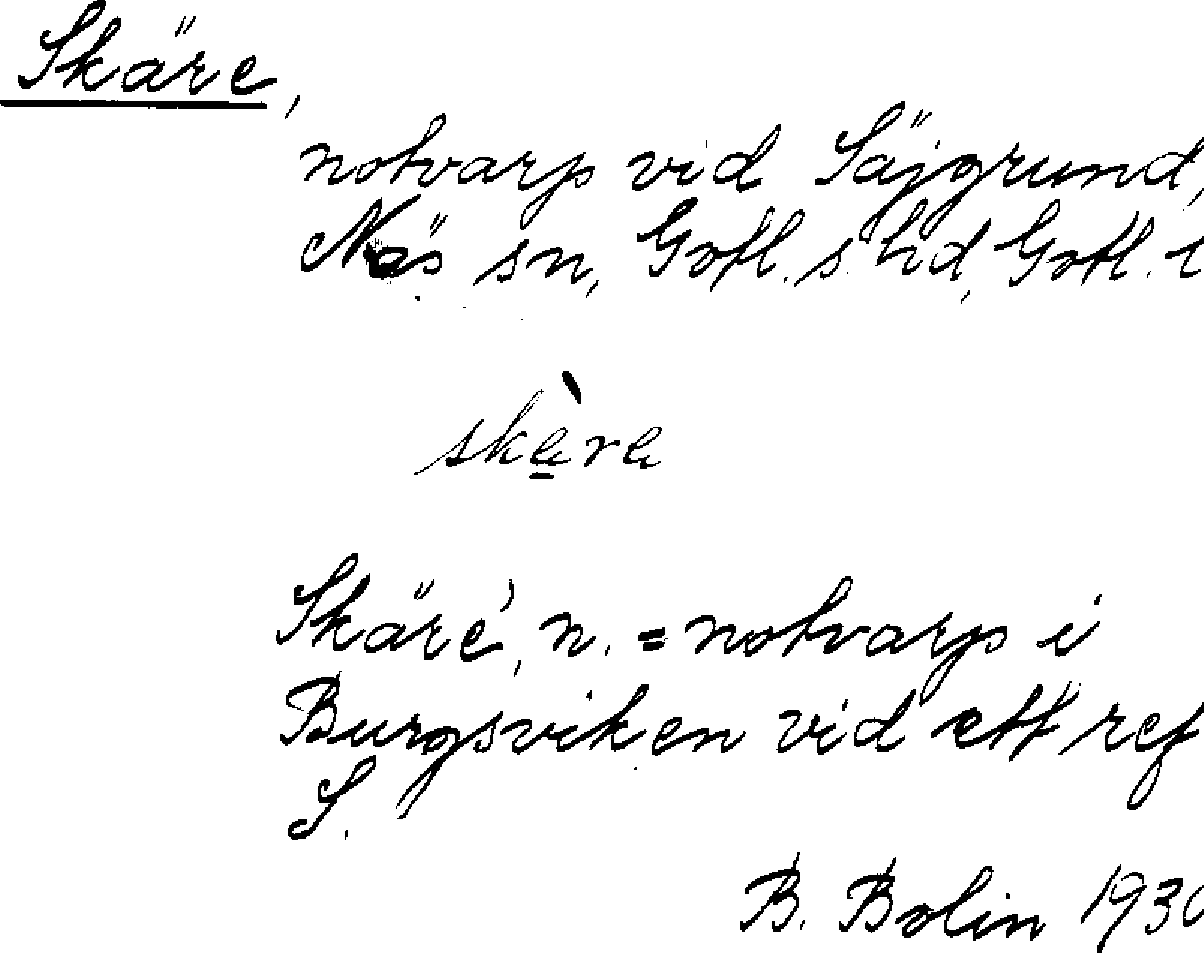 Skäre,
notvarp vid Säjgrund,
Näs sn, Gotl. s. hd, Gotl. l
skὲre
Skäre', n. = notvarp i
Burgsviken vid ett ref
S.
B. Bolin 1930